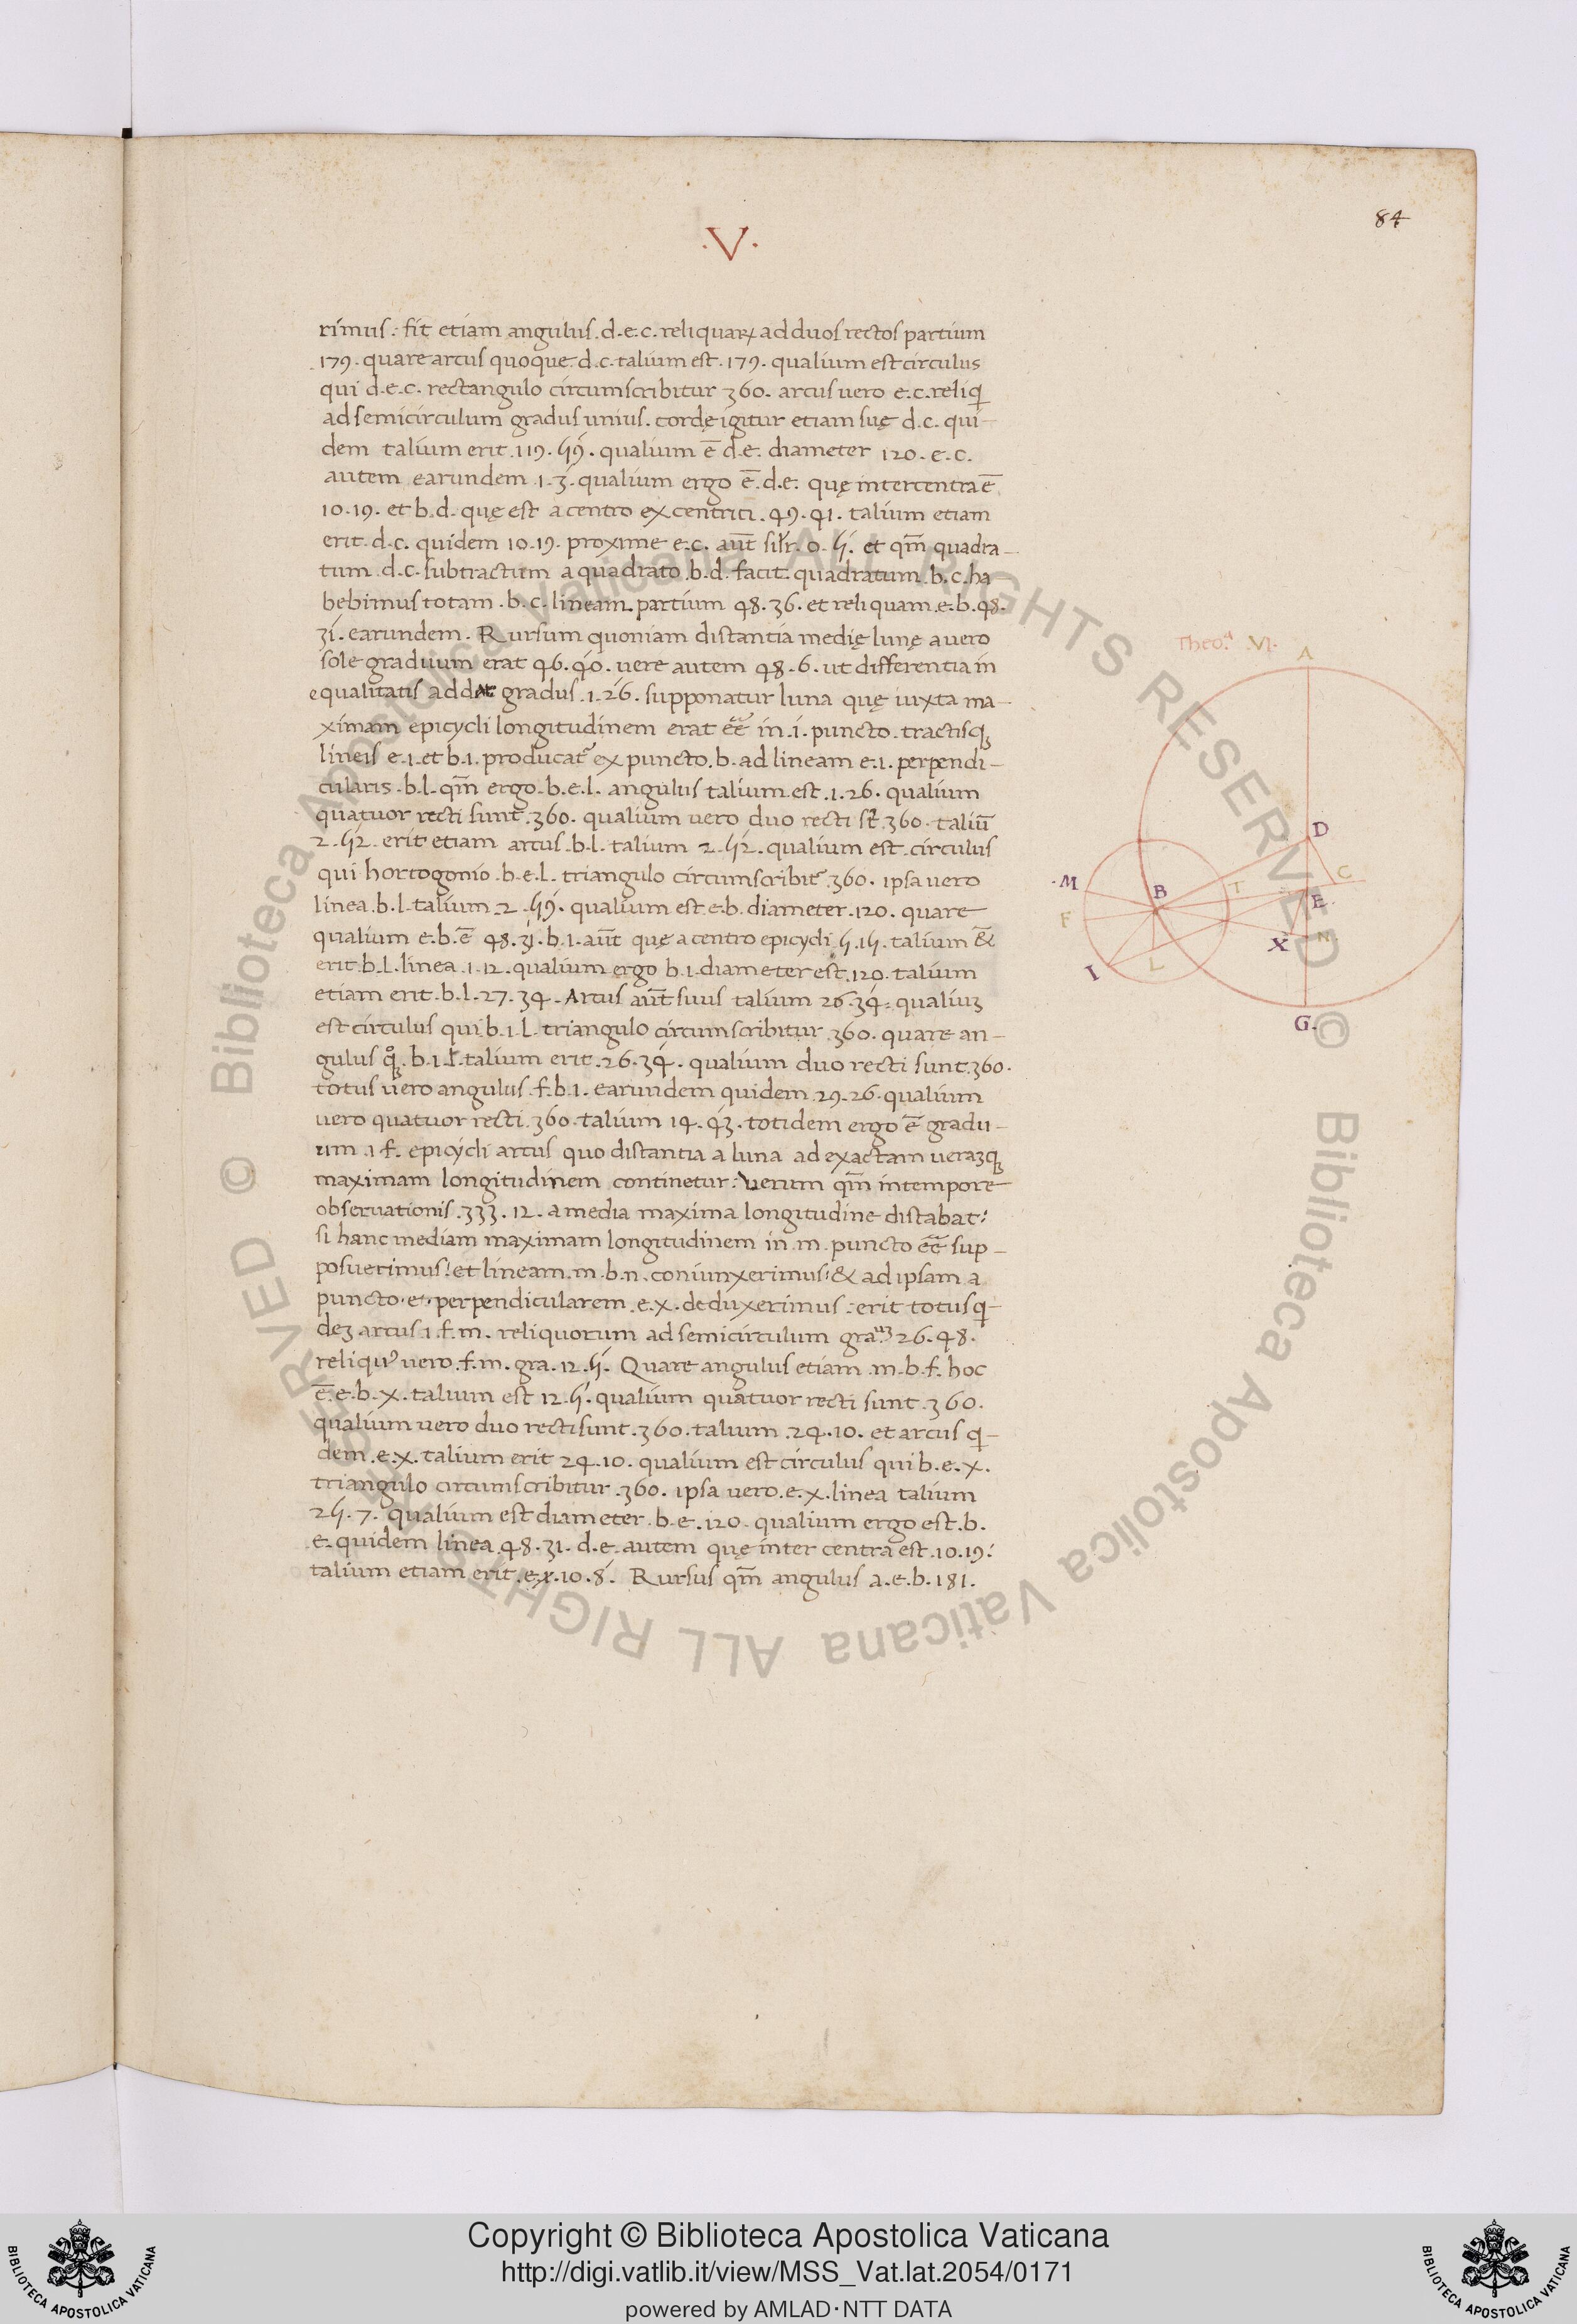 84
.V.
rimus: fit etiam angulus.d.e.c. reliquaꝝ ad duos rectos partium
.179. quare arcus quoque.d.c. talium est.179. qualium est circulus
qui d.e.c. rectangulo circumscribitur 360. arcus vero e.c. reliqͥ
ad semicirculum gradus unius. cordę igitur etiam suę d.c. qui-
dem talium erit.119.59. qualium ē d.e. diameter 120. e.c.
autem earundem 1.3. qualium ergo ē.d.e. quę inter centra ē
10.19. et b.d. quę est a centro excentrici.49.41. talium etiam
erit.d.c. quidem 10.19. proxime e.c. aūt silr.0.5. et qm̄ quadra-
tum d.c. subtractum a quadrato.b.d. facit quadratum.b.c. ha
bebimus totam.b.c. lineam.partium 48.36. et reliquam.e.b.48.
31. earundem. Rursum quoniam distantia medię lunę a vero
sole graduum erat 46.40. vere autem 48.6. ut differentia in
equalitatis addat gradus.1.26. supponatur luna quę iuxta ma-
ximam epicycli longitudinem erat eē in.i. puncto. tractisqꝫ
lineis e.i. et b.i. producat᷑ ex puncto.b. ad lineam e.i. perpendi-
cularis.b.l. qm̄ ergo.b.e.l. angulus talium est.1.26. qualium
quatuor recti sunt.360. qualium vero duo recti st̄.360. taliū
2.52. erit etiam arcus.b.l. talium 2.52. qualium est circulus
qui hortogonio.b.e.l. triangulo circumscribit᷑.360. ipsa vero
linea.b.l. talium.2.59. qualium est.e.b. diameter.120. quare
qualium e.b. ē 48.31. b.i. aūt quę a centro epicycli 5.15. talium &
erit.b.l. linea.1.12. qualium ergo b.i. diameter est.120. talium
etiam erit.b.l.27.34. Arcus aūt suus talium 26.34. qualiuꝫ
est circulus qui.b.i.l. triangulo circumscribitur 360. quare an-
gulus qͦꝫ.b.i.l. talium erit.26.34. qualium duo recti sunt.360.
totus vero angulus.f.b.i. earundem quidem 29.26. qualium
vero quatuor recti.360. talium 14.43. totidem ergo ē gradu-
um.i.f. epicycli arcus quo distantia a luna ad exactam veraꝫqꝫ
maximam longitudinem continetur: Verum qm̄ in tempore
observationis.333.12. a media maxima longitudine distabat:
si hanc mediam maximam longitudinem in.m. puncto eē sup-
posuerimus: et lineam.m.b.n. coniunxerimus: & ad ipsam a
puncto.e. perpendicularem.e.x. deduxerimus: erit totus qͥ-
deꝫ arcus.i.f.m. reliquorum ad semicirculum gra.uꝫ 26.48.
reliquꝰ vero.f.m. gra.12.5. Quare angulus etiam.m.b.f. hoc
ē.e.b.x. talium est 12.5. qualium quatuor recti sunt.360.
qualium vero duo recti sunt.360. talium.24.10. et arcus qͥ-
dem.e.x. talium erit 24.10. qualium est circulus qui b.e.x.
triangulo circumscribitur.360. ipsa vero.e.x. linea talium
25.7. qualium est diameter.b.e.120. qualium ergo est.b.
e. quidem linea.48.31. d.e. autem quę inter centra est.10.19:
talium etiam erit.e.x.10.8. Rursus qm̄ angulus a.e.b.181.
Theo.a VI.
A
D
M
B
T
C
F
E
X
N
I
L
G.
© Biblioteca Apostolica Vaticana ALL RIGHTS RESERVED
© Biblioteca Apostolica Vaticana ALL RIGHTS RESERVED
Copyright © Biblioteca Apostolica Vaticana
http://digi.vatlib.it/view/MSS_Vat.lat.2054/0171
powered by AMLAD·NTT DATA
BIBLIOTECA APOSTOLICA VATICANA
BIBLIOTECA APOSTOLICA VATICANA